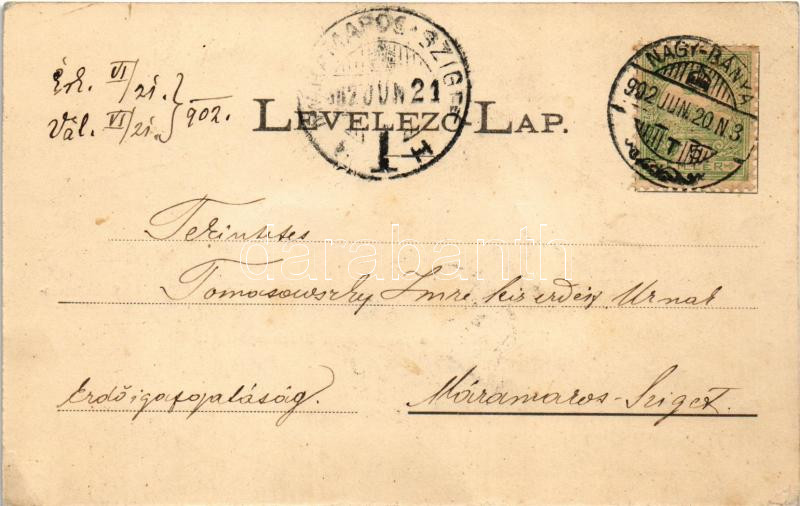 Érk. VI/21. } 902.
Vál. VI/21.
MÁRAMAROS-SZIGET
902 JUN 21
1
NAGY-BÁNYA
902 JUN. 20 N 3
LEVELEZŐ-LAP.
Tekintetes
Tomasowszky Imre kir erdész Urnak
Erdőigazgatóság.
Máramaros-Sziget.
darabanth